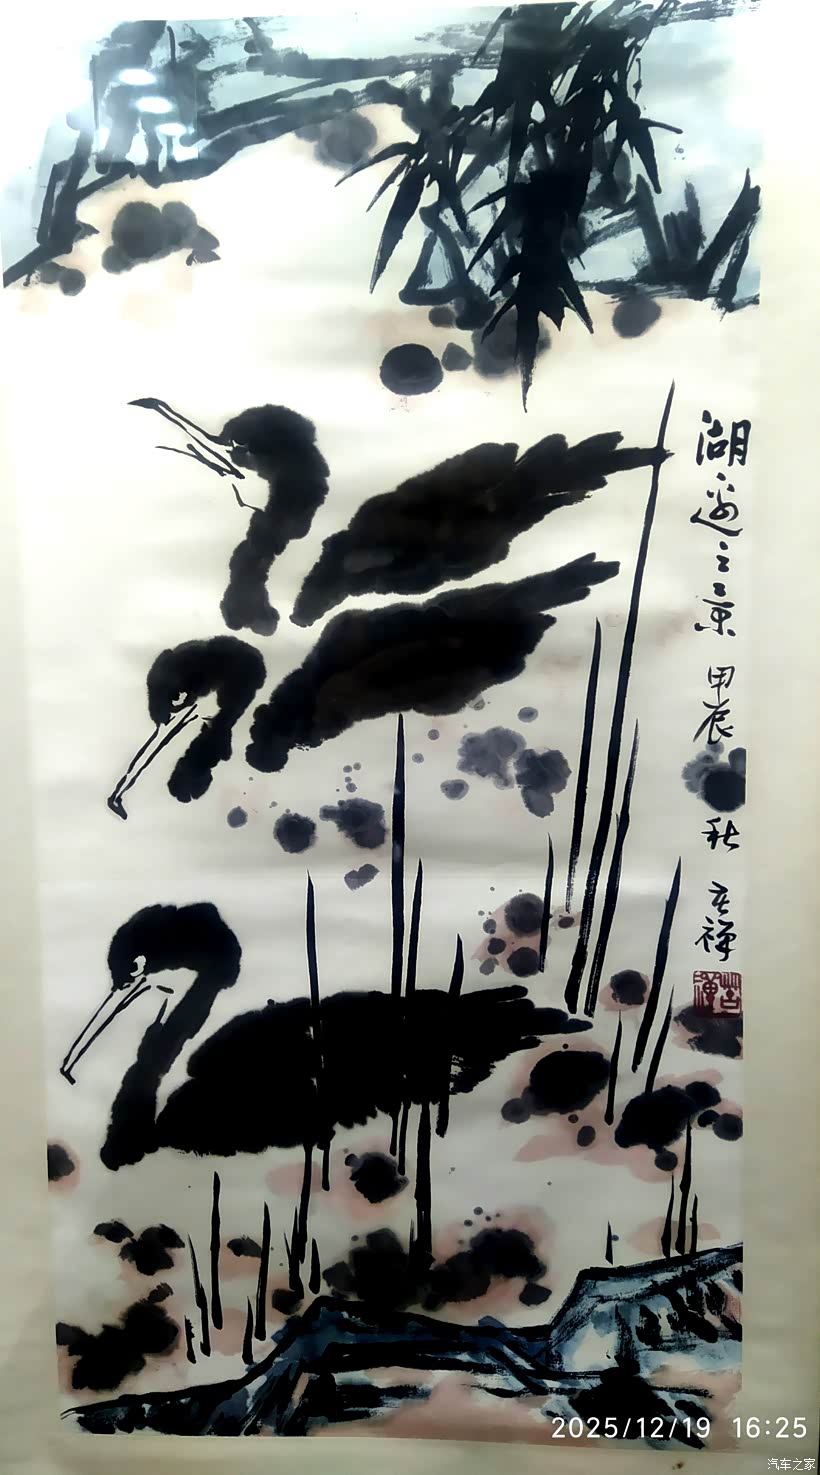 湖邊之景 甲辰 秋 苦禪
2025/12/19 16:25
汽车之家